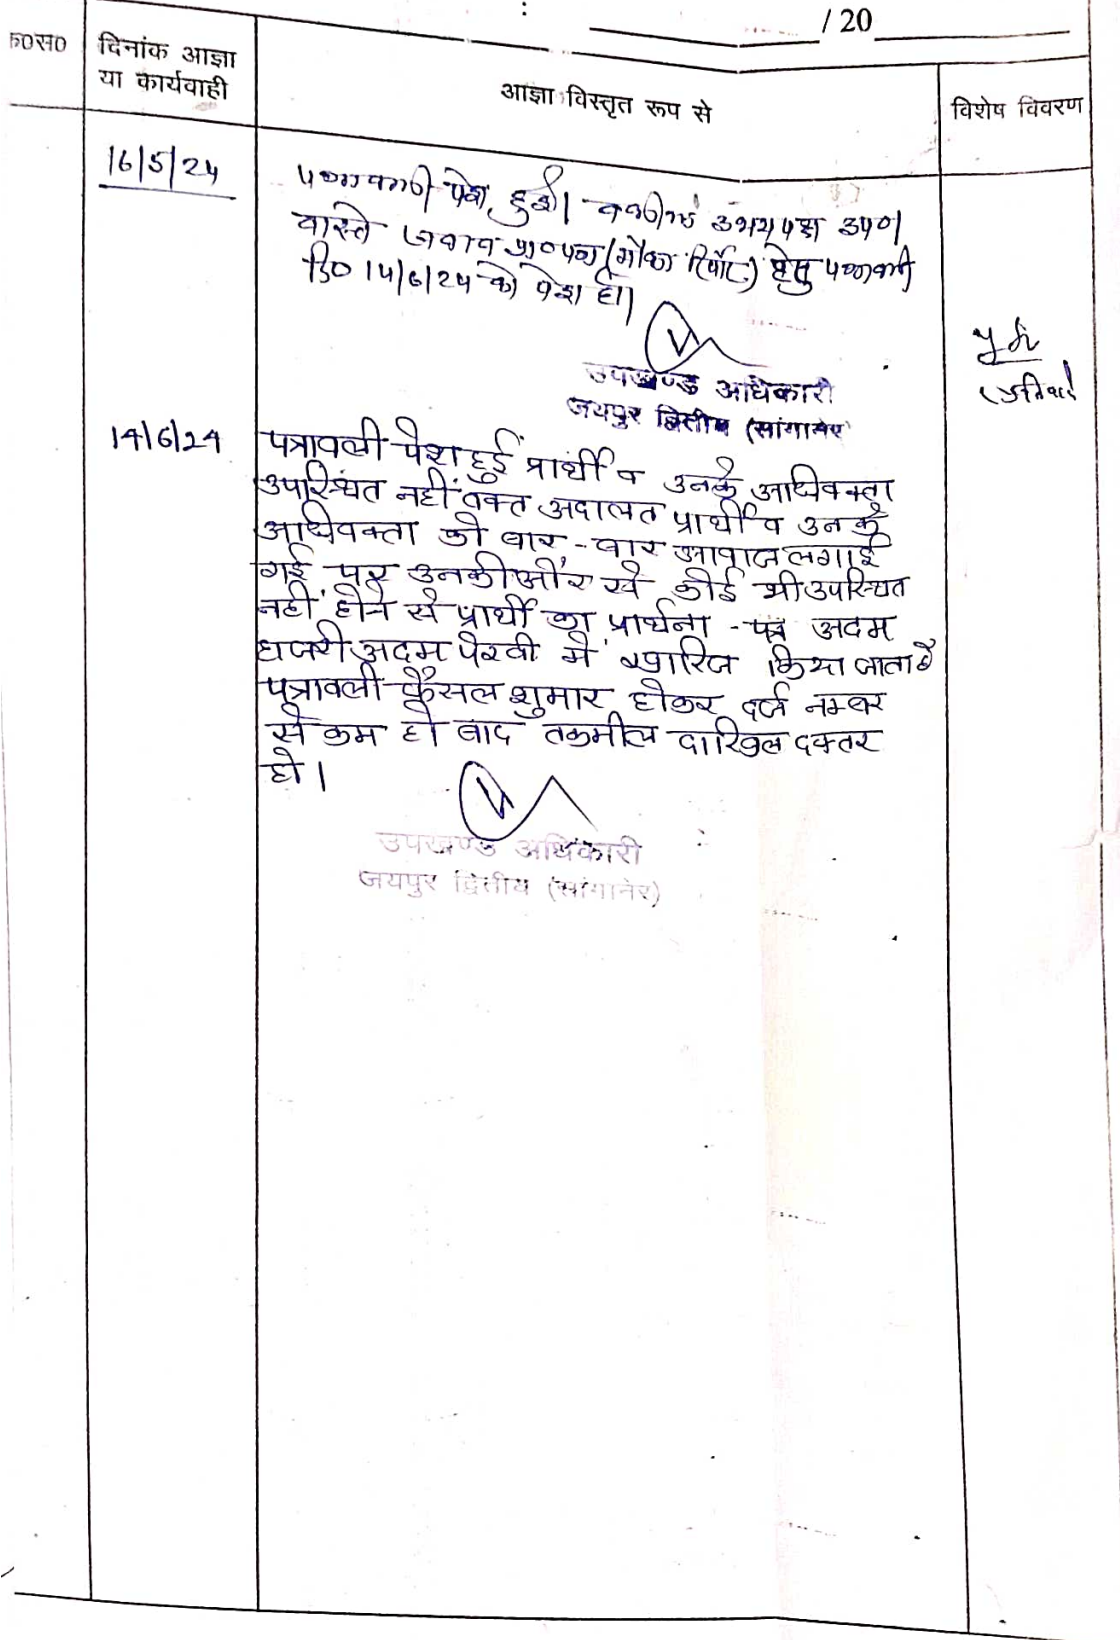 / 20
क्र0स0
दिनांक आज्ञा
या कार्यवाही
आज्ञा विस्तृत रूप से
विशेष विवरण
16/5/24
पत्रावली पेश हुई। वकील उभय पक्ष उप0।
वास्ते जवाब प्रा0 पत्र (मौका रिपोर्ट) हेतु पत्रावली
दि0 14/6/24 को पेश हो।
उपखण्ड अधिकारी
जयपुर द्वितीय (सांगानेर)
14/6/24
पत्रावली पेश हुई प्रार्थी व उनके अधिवक्ता
उपस्थित नहीं वक्त अदालत प्रार्थी व उनके
अधिवक्ता को बार-बार आवाज लगाई
गई पर उनकी ओर से कोई भी उपस्थित
नहीं होने से प्रार्थी का प्रार्थना-पत्र अदम
हाजरी अदम पैरवी में खारिज किया जाता है
पत्रावली फैसल शुमार होकर दर्ज नम्बर
से कम हो बाद तकमील दाखिल दफ्तर
हो।
उपखण्ड अधिकारी
जयपुर द्वितीय (सांगानेर)